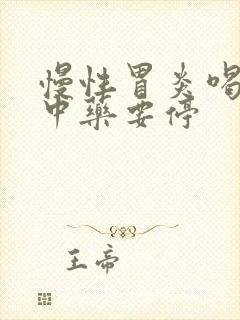 慢性胃炎喝
中药要停
王帝